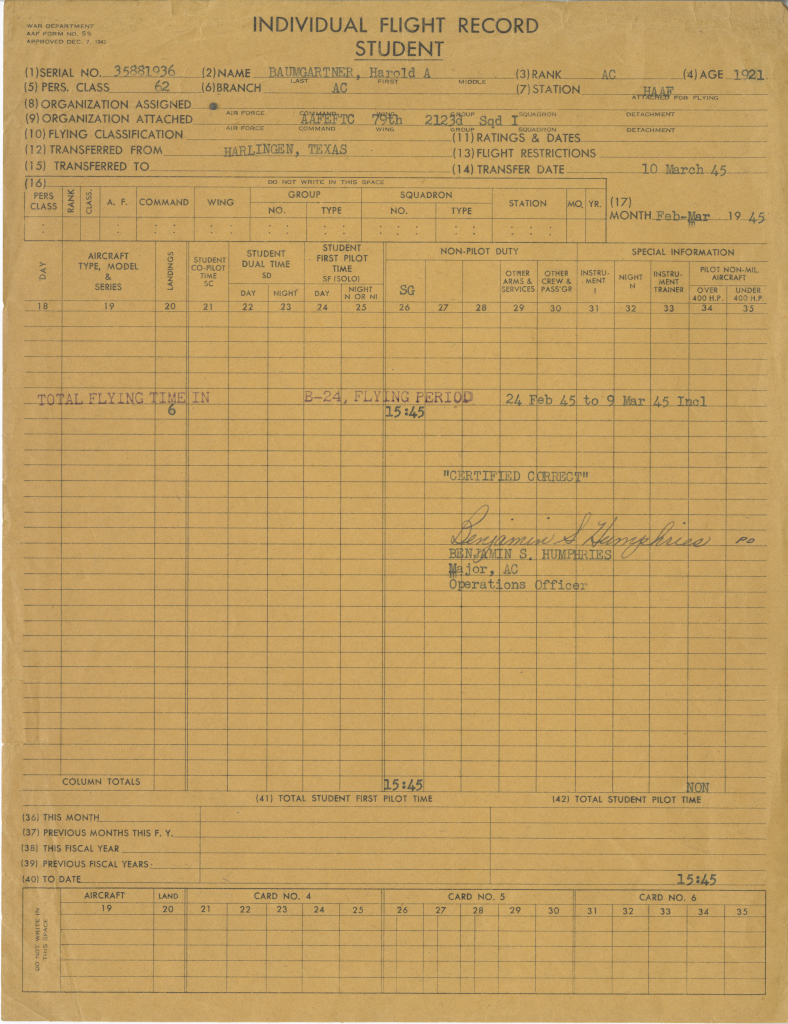 WAR DEPARTMENT
AAF FORM NO. 5S
APPROVED DEC. 7, 1942
INDIVIDUAL FLIGHT RECORD
STUDENT
(1)SERIAL NO. 35881936 (2)NAME BAUMGARTNER, Harold A (3)RANK AC (4)AGE 1921
LAST FIRST MIDDLE
(5) PERS. CLASS 62 (6)BRANCH AC (7)STATION HAAF
ATTACHED FOR FLYING
(8) ORGANIZATION ASSIGNED
AIR FORCE COMMAND WING GROUP SQUADRON DETACHMENT
(9) ORGANIZATION ATTACHED AAFEFTC 79th 2123d Sqd I
AIR FORCE COMMAND WING GROUP SQUADRON DETACHMENT
(10) FLYING CLASSIFICATION (11) RATINGS & DATES
(12) TRANSFERRED FROM HARLINGEN, TEXAS (13) FLIGHT RESTRICTIONS
(15) TRANSFERRED TO (14) TRANSFER DATE 10 March 45
(16) DO NOT WRITE IN THIS SPACE
PERS CLASS RANK CLASS. A. F. COMMAND WING GROUP SQUADRON STATION MO. YR. (17)
NO. TYPE NO. TYPE
MONTH Feb-Mar 19 45
DAY AIRCRAFT TYPE, MODEL & SERIES LANDINGS STUDENT CO-PILOT TIME SC STUDENT DUAL TIME SD STUDENT FIRST PILOT TIME SF (SOLO) NON-PILOT DUTY SPECIAL INFORMATION
DAY NIGHT DAY NIGHT N OR NI SG OTHER ARMS & SERVICES OTHER CREW & PASS'GR INSTRU-MENT I NIGHT N INSTRU-MENT TRAINER PILOT NON-MIL. AIRCRAFT OVER 400 H.P. UNDER 400 H.P.
18 19 20 21 22 23 24 25 26 27 28 29 30 31 32 33 34 35
TOTAL FLYING TIME IN B-24, FLYING PERIOD 24 Feb 45 to 9 Mar 45 Incl
6 15:45
"CERTIFIED CORRECT"
Benjamin S Humphries PO
BENJAMIN S. HUMPHRIES
Major, AC
Operations Officer
COLUMN TOTALS 15:45 NON
(41) TOTAL STUDENT FIRST PILOT TIME (42) TOTAL STUDENT PILOT TIME
(36) THIS MONTH
(37) PREVIOUS MONTHS THIS F. Y.
(38) THIS FISCAL YEAR
(39) PREVIOUS FISCAL YEARS
(40) TO DATE 15:45
AIRCRAFT LAND CARD NO. 4 CARD NO. 5 CARD NO. 6
19 20 21 22 23 24 25 26 27 28 29 30 31 32 33 34 35
DO NOT WRITE IN THIS SPACE